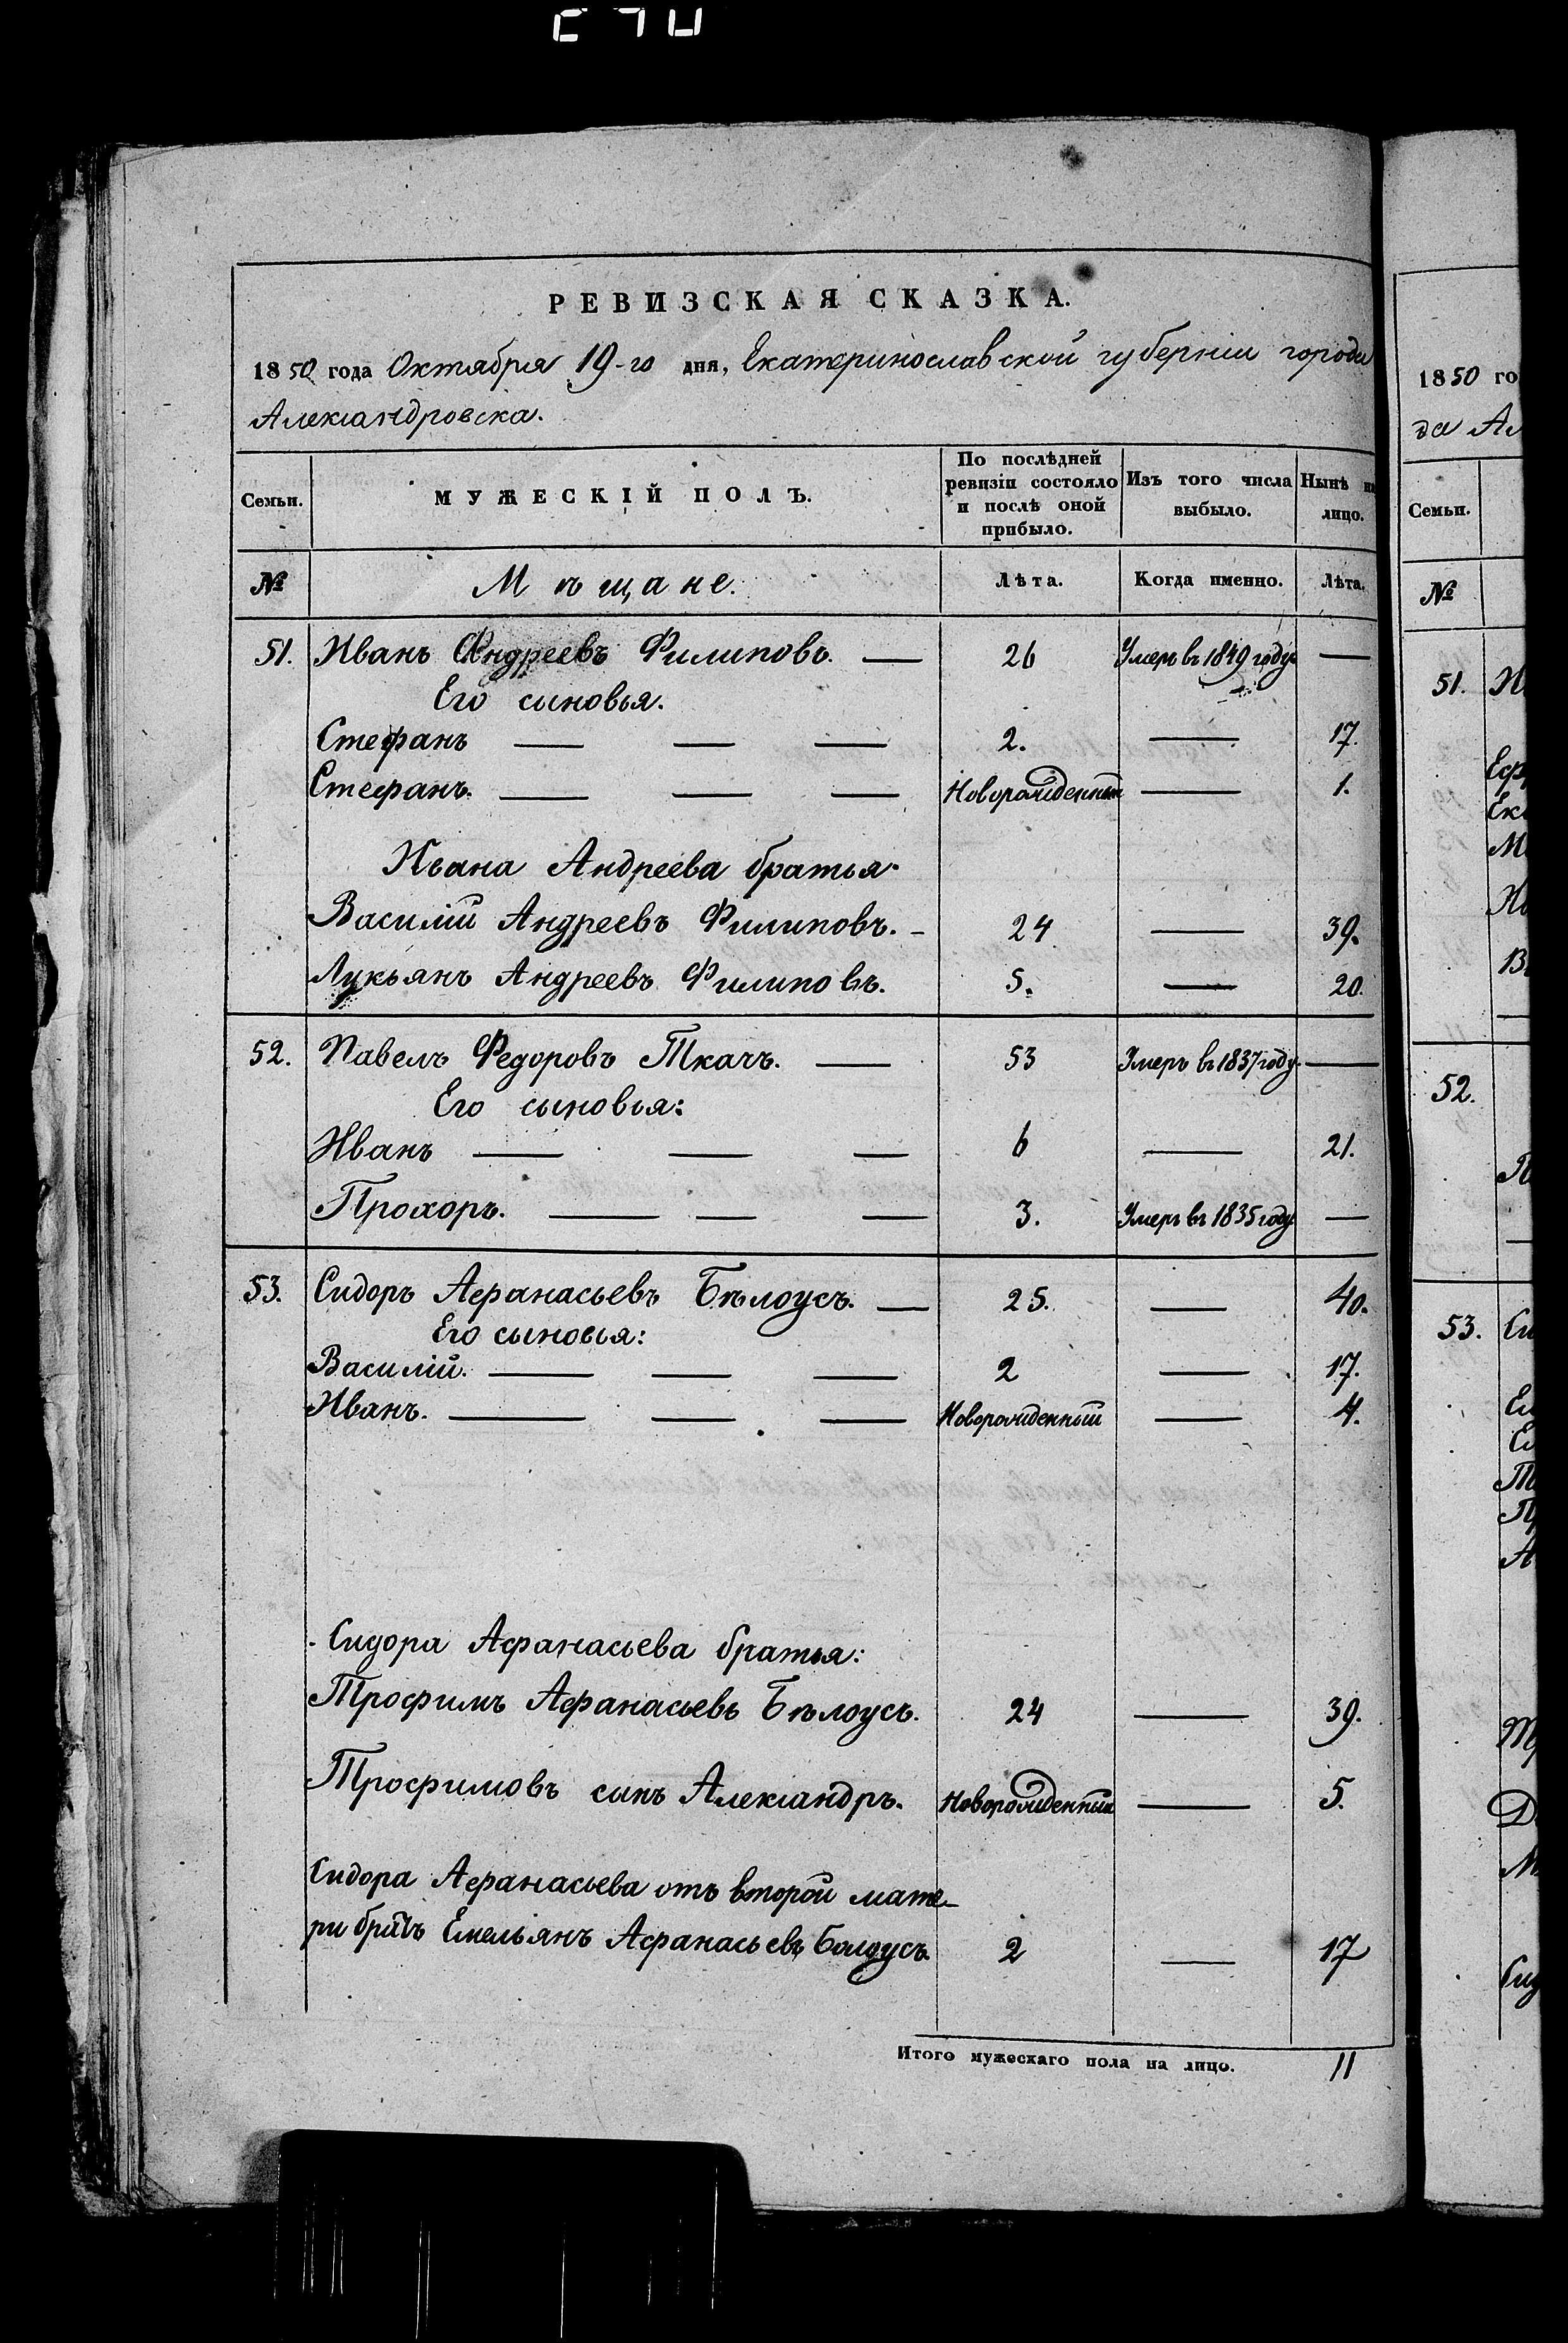 РЕВИЗСКАЯ СКАЗКА.
1850 года Октября 19-го дня, Екатеринославской губерніи города
Александровска.
Семьи. МУЖЕСКІЙ ПОЛЪ. По послѣдней ревизіи состояло и послѣ оной прибыло. Изъ того числа выбыло. Нынѣ на лицо.
№ Мѣщане. Лѣта. Когда именно. Лѣта.
51. Иванъ Андреевъ Филиповъ. — 26 Умеръ въ 1849 году —
Его сыновья.
Стефанъ — — — 2. — 17.
Стефанъ. — — — Новорожденный — 1.
Ивана Андреева братья.
Василій Андреевъ Филиповъ. - 24 — 39.
Лукьянъ Андреевъ Филиповъ. 5. — 20.
52. Павелъ Федоровъ Ткачъ. — 53 Умеръ въ 1837 году. —
Его сыновья:
Иванъ — — — 6 — 21.
Прохоръ. — — — 3. Умеръ въ 1835 году —
53. Сидоръ Афанасьевъ Бѣлоусъ. — 25. — 40.
Его сыновья:
Василій. — — — 2 — 17.
Иванъ. — — — Новорожденный — 4.
Сидора Афанасьева братья:
Трофимъ Афанасьевъ Бѣлоусъ. 24 — 39.
Трофимовъ сынъ Александръ. Новорожденный — 5.
Сидора Афанасьева отъ второй мате-
ри братъ Емельянъ Афанасьевъ Бѣлоусъ 2 — 17
Итого мужескаго пола на лицо. 11
1850 го
да Ал
Семьи.
№
51.
52.
53.